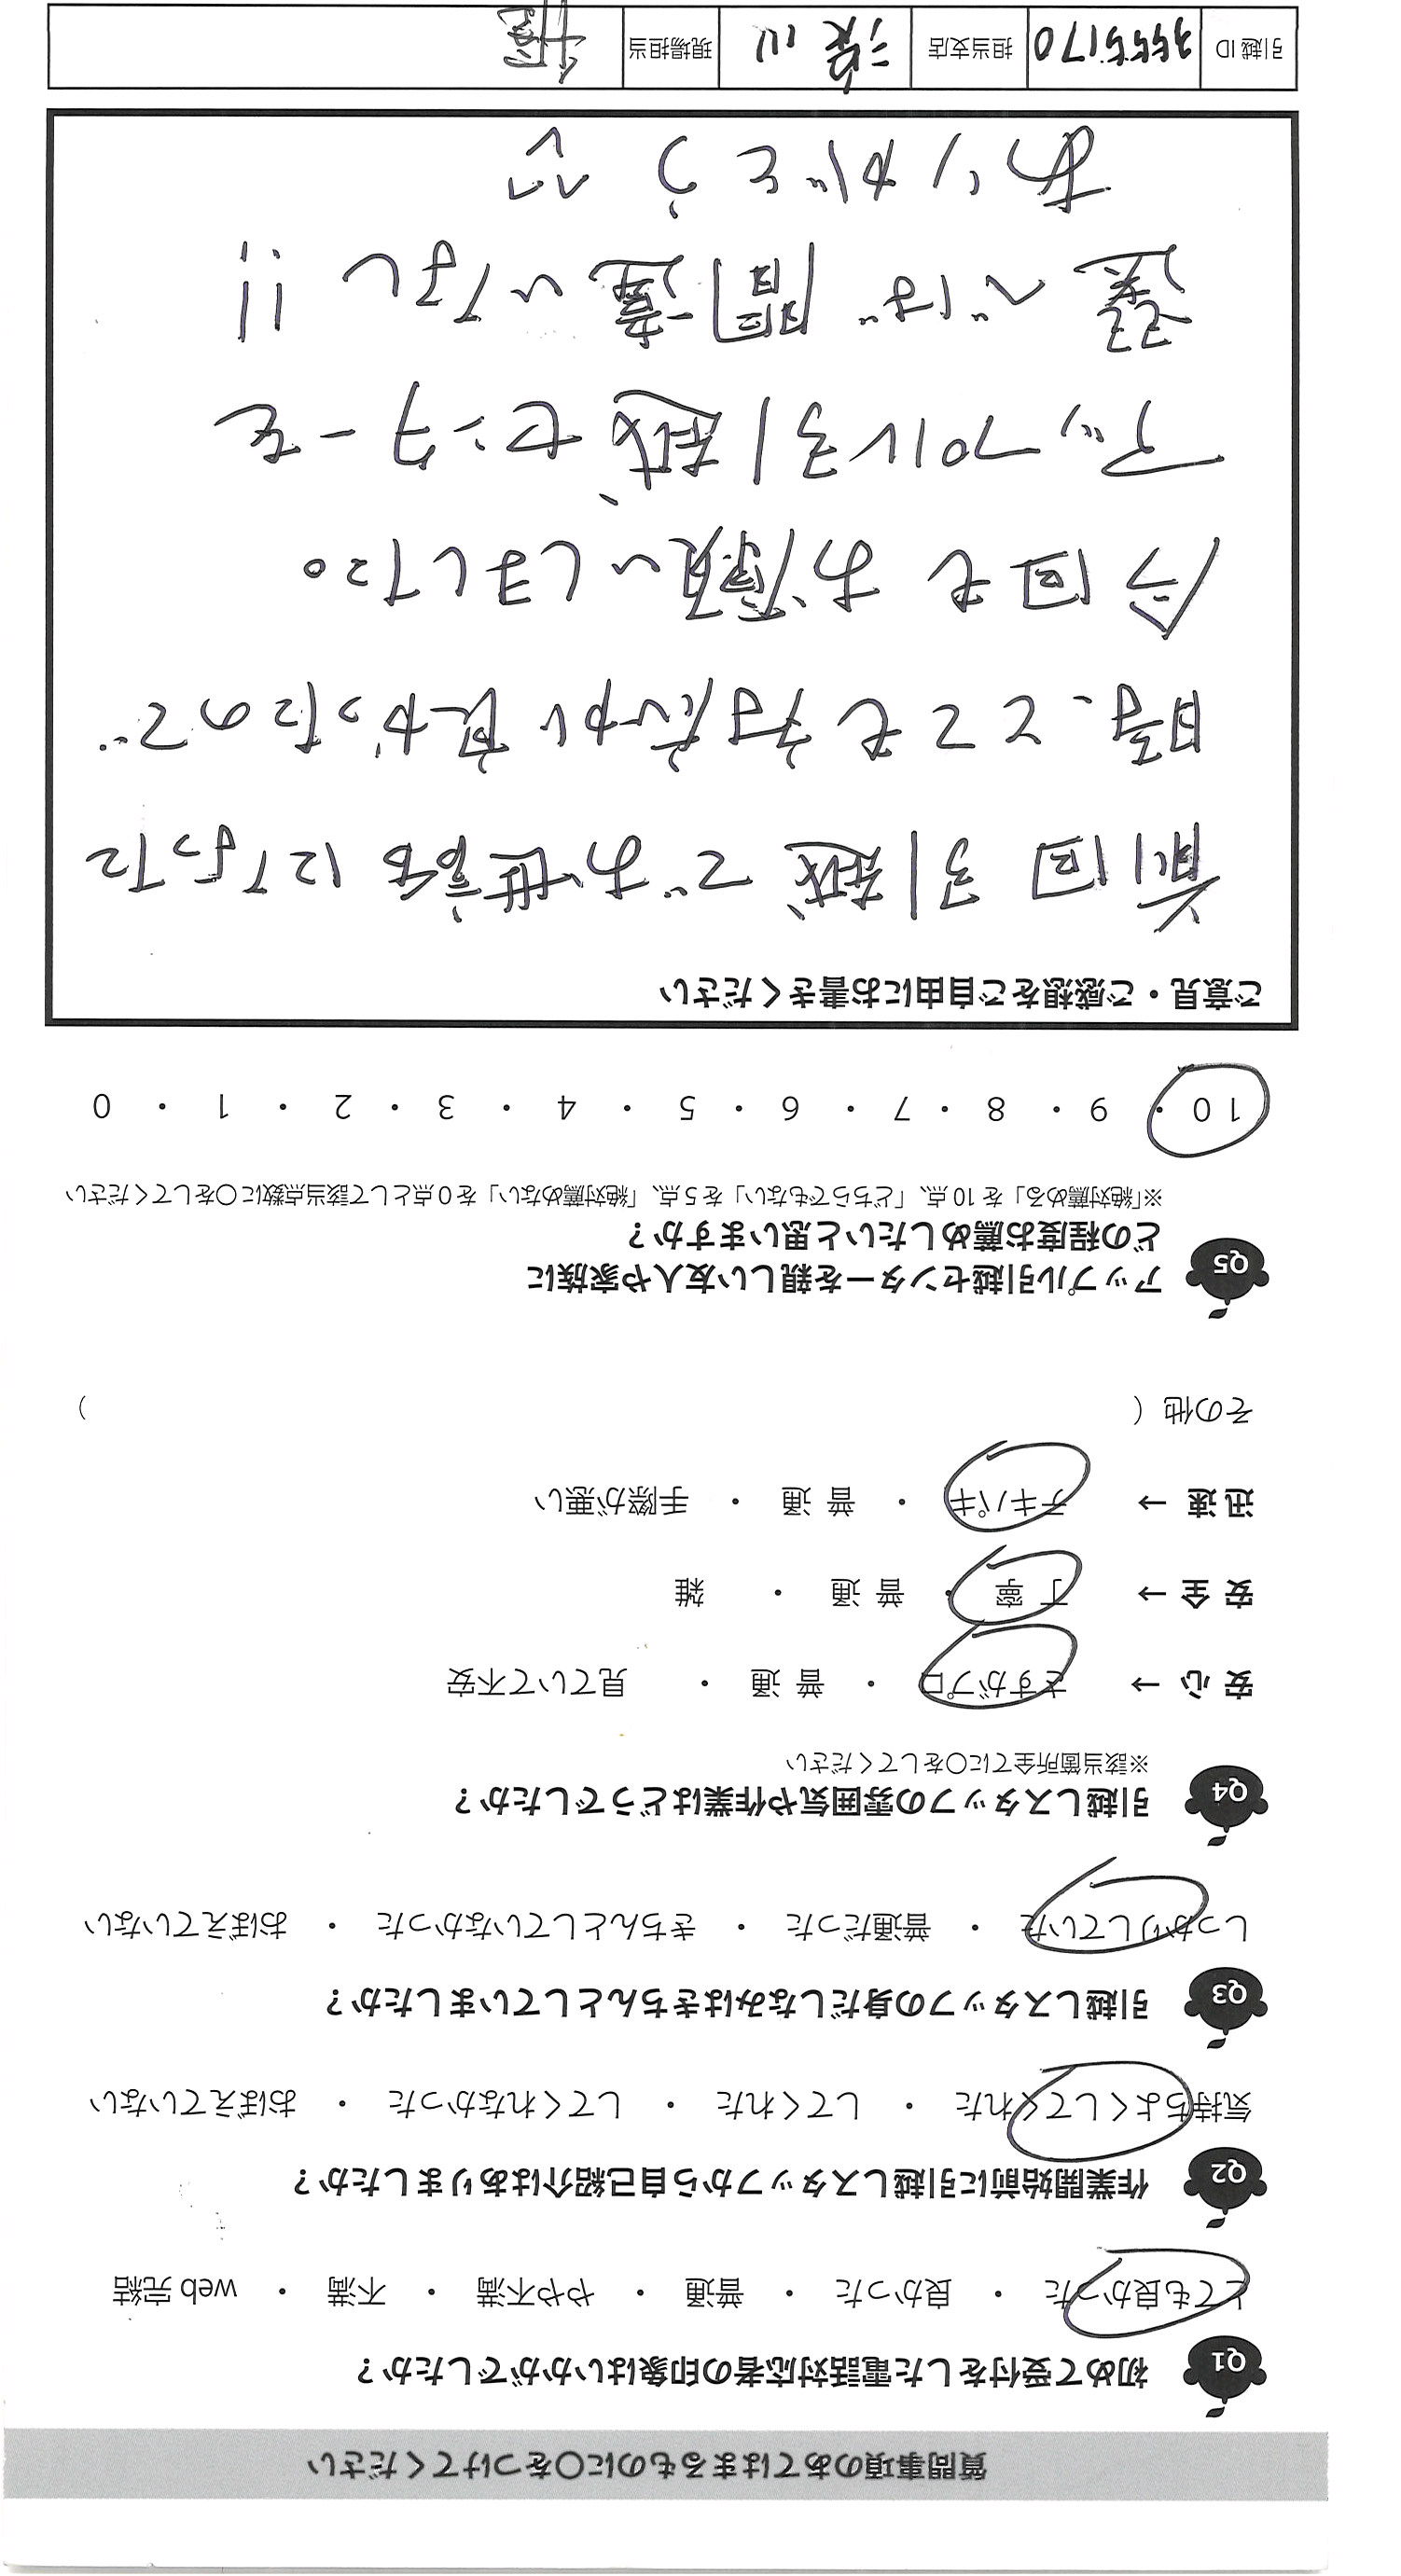 質問事項のあてはまるものに〇をつけてください
Q1 初めて受付をした電話対応者の印象はいかがでしたか？
とても良かった ・ 良かった ・ 普通 ・ やや不満 ・ 不満 ・ web 完結
Q2 作業開始前に引越しスタッフから自己紹介はありましたか？
気持ちよくしてくれた ・ してくれた ・ してくれなかった ・ おぼえていない
Q3 引越しスタッフの身だしなみはきちんとしていましたか？
しっかりしていた ・ 普通だった ・ きちんとしていなかった ・ おぼえていない
Q4 引越しスタッフの雰囲気や作業はどうでしたか？
※該当箇所全てに〇をしてください
安 心 → さすがプロ ・ 普 通 ・ 見ていて不安
安 全 → 丁 寧 ・ 普 通 ・ 雑
迅 速 → テキパキ ・ 普 通 ・ 手際が悪い
その他（ ）
Q5 アップル引越センターを親しい友人や家族に
どの程度お薦めしたいと思いますか？
※「絶対薦める」を 10 点、「どちらでもない」を 5 点、「絶対薦めない」を 0 点として該当点数に〇をしてください
10 ・ 9 ・ 8 ・ 7 ・ 6 ・ 5 ・ 4 ・ 3 ・ 2 ・ 1 ・ 0
ご意見・ご感想をご自由にお書きください
前回引越でお世話になった
時、とても対応が良かったので
今回もお願いしました。
アップル引越センターを
選べば間違いなし!!
ありがとう ^^
引越 ID 3555170 担当支店 港川 現場担当